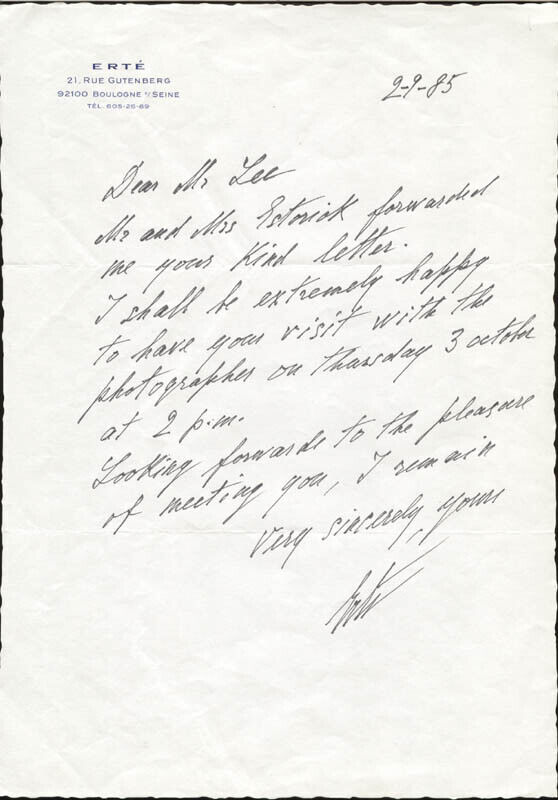 ERTÉ
21, RUE GUTENBERG
92100 BOULOGNE S/SEINE
TÉL. 605-26-89
2-9-85
Dear Mr Lee
Mr and Mrs Estorick forwarded
me your kind letter.
I shall be extremely happy
to have your visit with the
photographer on thursday 3 october
at 2 p.m.
Looking forwards to the pleasure
of meeting you, I remain
Very sincerely yours
Erté